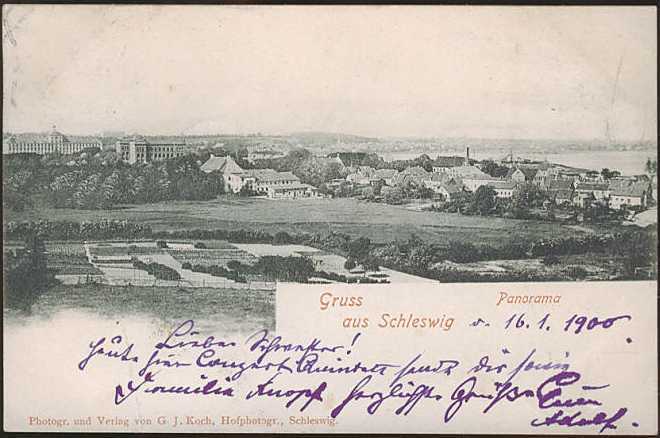 Gruss
aus Schleswig
Panorama
v. 16.1. 1900
Liebe Schwester!
Heute hier Concert
Familie Knopf herzliche Grüße Euer
Adolf.
Photogr. und Verlag von G. J. Koch, Hofphotogr., Schleswig.